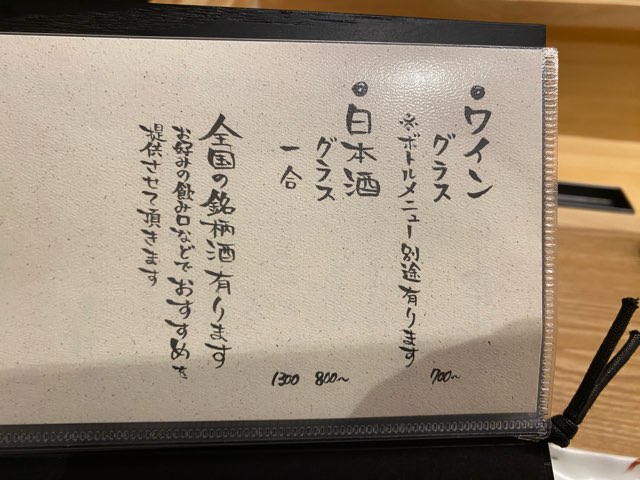 ワイン
グラス 700〜
※ボトルメニュー別途有ります
日本酒
グラス 800〜
一合 1300
全国の銘柄酒有ります
お好みの飲み口などでおすすめを
提供させて頂きます